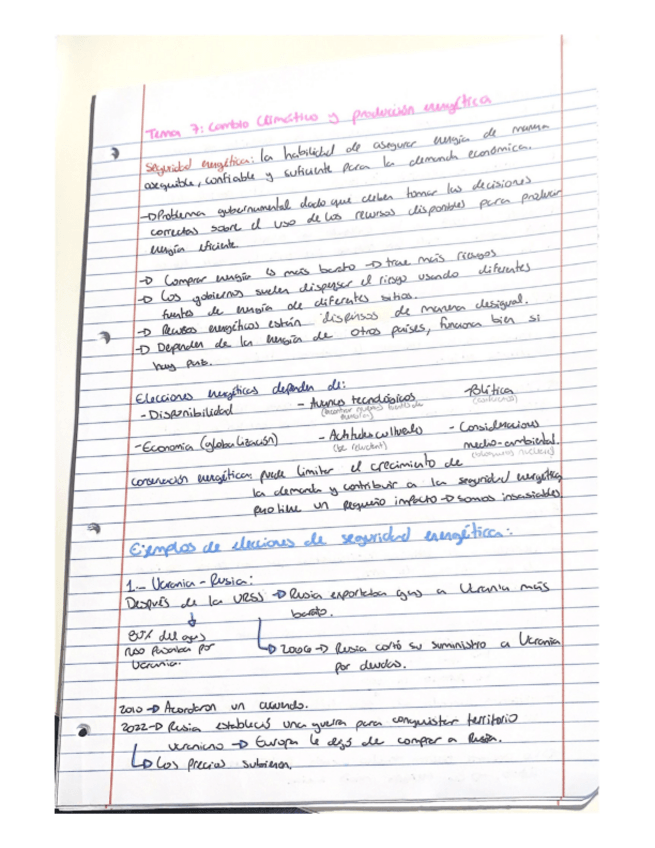 Tema 7: Cambio climático y producción energética
Seguridad energética: la habilidad de asegurar energía de manera
asequible, confiable y suficiente para la demanda económica.
→Problema gubernamental dado que deben tomar las decisiones
correctas sobre el uso de los recursos disponibles para producir
energía eficiente
→ Comprar energía es más barato → trae más riesgos
→ Los gobiernos suelen dispersar el riesgo usando diferentes
fuentes de energía de diferentes sitios.
→ Recursos energéticos están dispersos de manera desigual.
→ Depender de la energía de otros países, funciona bien si
hay paz.
Elecciones energéticas dependen de:
- Disponibilidad - Avances tecnológicos - Política
- Economía (globalización) - Actitudes culturales - Consideraciones
(be reluctant) medio-ambiental.
conservación energética: puede limitar el crecimiento de
la demanda y contribuir a la seguridad energética
pero tiene un pequeño impacto → somos insaciables
Ejemplos de elecciones de seguridad energética:
1.- Ucrania - Rusia:
Después de la URSS → Rusia exportaba gas a Ucrania más
barato.
80% del gas
ruso pasaba por
Ucrania.
2006 → Rusia cortó su suministro a Ucrania
por deudas.
2010 → Acordaron un acuerdo.
2022 → Rusia estableció una guerra para conquistar territorio
ucraniano → Europa le dejó de comprar a Rusia.
→ Los precios subieron.